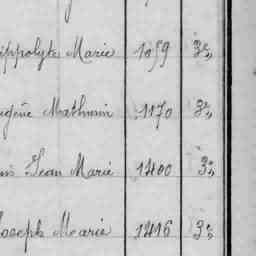 ippolyte Marie 1059 3e,
ugène Mathurin 1170 3e,
Jean Marie 1400 3e,
Joseph Marie 1416 3e,